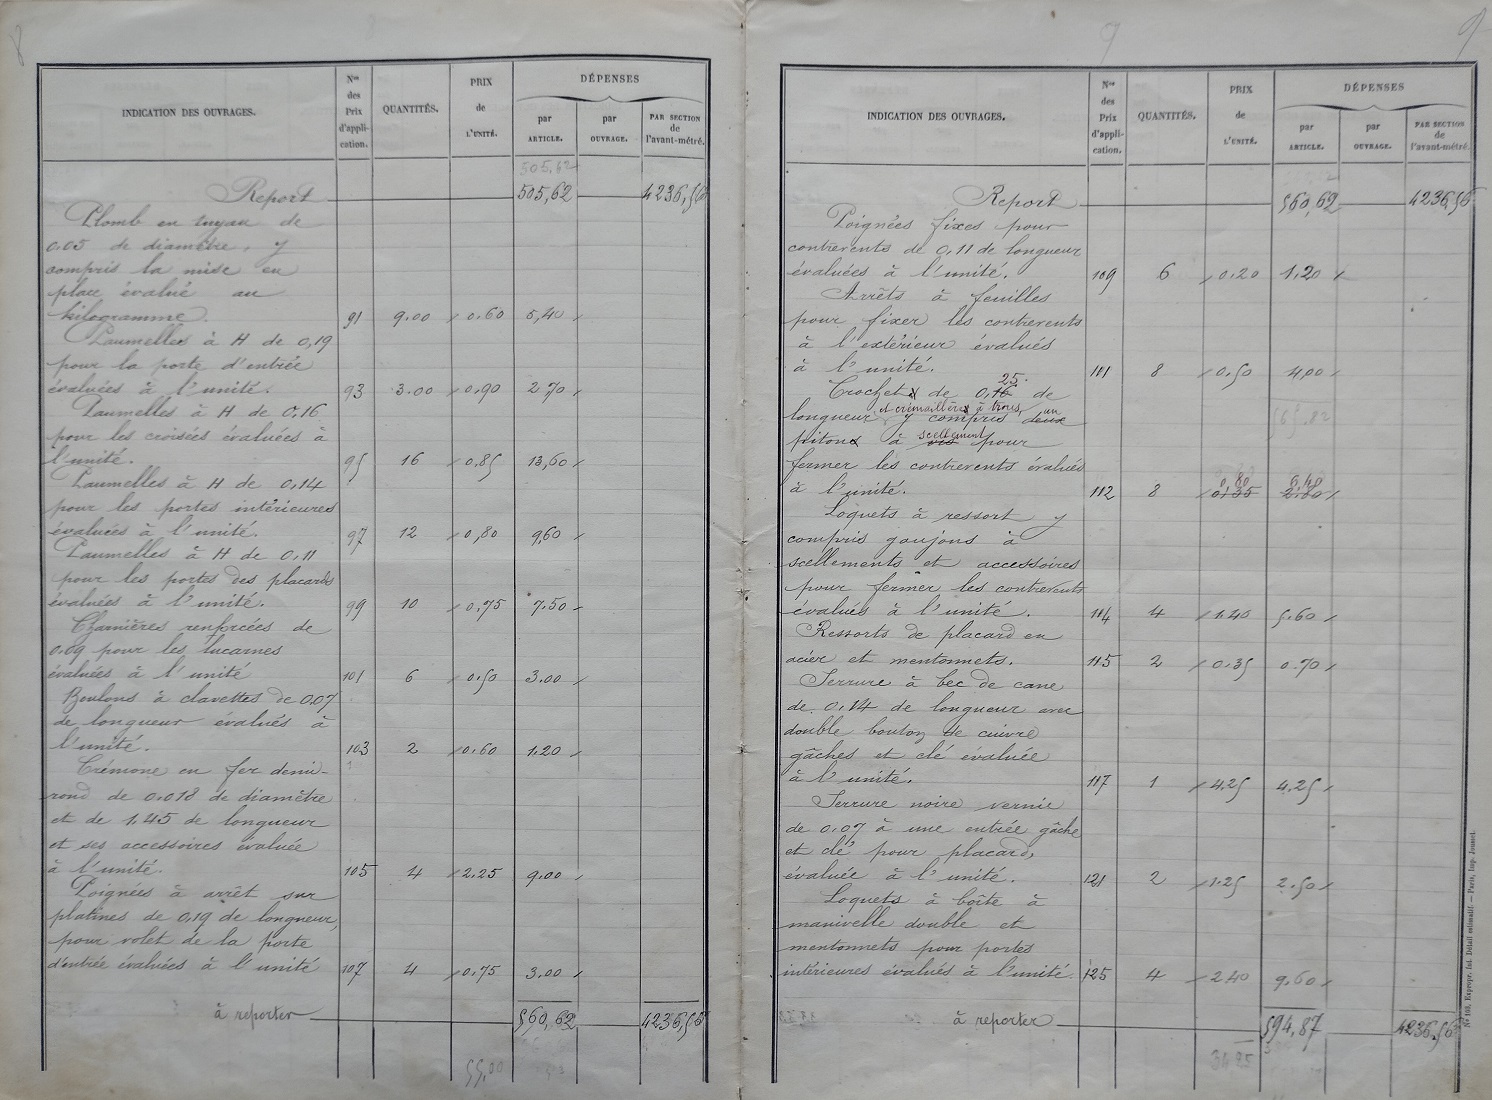 8
INDICATION DES OUVRAGES.
Nos des Prix d'appli-cation.
QUANTITÉS.
PRIX de L'UNITÉ.
DÉPENSES
par ARTICLE.
par OUVRAGE.
PAR SECTION de l'avant-métré.
505,62
Report 505,62 4236,56
Plomb en tuyau de
0.05 de diamètre, y
compris la mise en
place évalué au
kilogramme. 91 9.00 0.60 5,40
Paumelles à H de 0,19
pour la porte d'entrée
évaluées à l'unité. 93 3.00 0.90 2 70
Paumelles à H de 0,16
pour les croisées évaluées à
l'unité. 95 16 0,85 13,60
Paumelles à H de 0.14
pour les portes intérieures
évaluées à l'unité. 97 12 0,80 9,60
Paumelles à H de 0.11
pour les portes des placards
évaluées à l'unité. 99 10 0,75 7.50
Charnières renforcées de
0.09 pour les lucarnes
évaluées à l'unité 101 6 0.50 3.00
Boulons à clavettes de 0.07
de longueur évalués à
l'unité. 103 2 0.60 1.20
Crémone en fer demi-
rond de 0.018 de diamètre
et de 1.45 de longueur
et ses accessoires évaluée
à l'unité. 105 4 2.25 9.00
Poignées à arrêt sur
platines de 0,19 de longueur,
pour volet de la porte
d'entrée évaluées à l'unité 107 4 0.75 3.00
à reporter 560,62 4236,56
55,00
9
9
INDICATION DES OUVRAGES.
Nos des Prix d'appli-cation.
QUANTITÉS.
PRIX de L'UNITÉ.
DÉPENSES
par ARTICLE.
par OUVRAGE.
PAR SECTION de l'avant-métré.
Report 560,62 4236,56
Poignées fixes pour
contrevents de 0,11 de longueur
évaluées à l'unité. 109 6 0.20 1.20
Arrêts à feuilles
pour fixer les contrevents
à l'extérieur évalués
à l'unité. 111 8 0.50 4,00
25.
Crochet de 0,16 de
565,82
et crémaillère à trois, un
longueur y compris deux
scellement
pitons à vis pour
fermer les contrevents évalués
0,80 6.40
à l'unité. 112 8 0.35 2.80
Loquets à ressort y
compris goujons à
scellements et accessoires
pour fermer les contrevents
évalués à l'unité. 114 4 1.40 5.60
Ressorts de placard en
acier et mentonnets. 115 2 0.35 0.70
Serrure à bec de cane
de 0,14 de longueur avec
double bouton de cuivre
gâches et clé évaluée
à l'unité. 117 1 4,25 4.25
Serrure noire vernie
de 0.07 à une entrée gâche
et clé pour placard,
évaluée à l'unité. 121 2 1.25 2.50
Loquets à boîte à
manivelle double et
mentonnets pour portes
intérieures évalués à l'unité. 125 4 2.40 9.60
à reporter 594,87 4236.56
34 25
N° 103. Expropr. Inf. Détail estimatif. — Paris, Imp. Jousset.